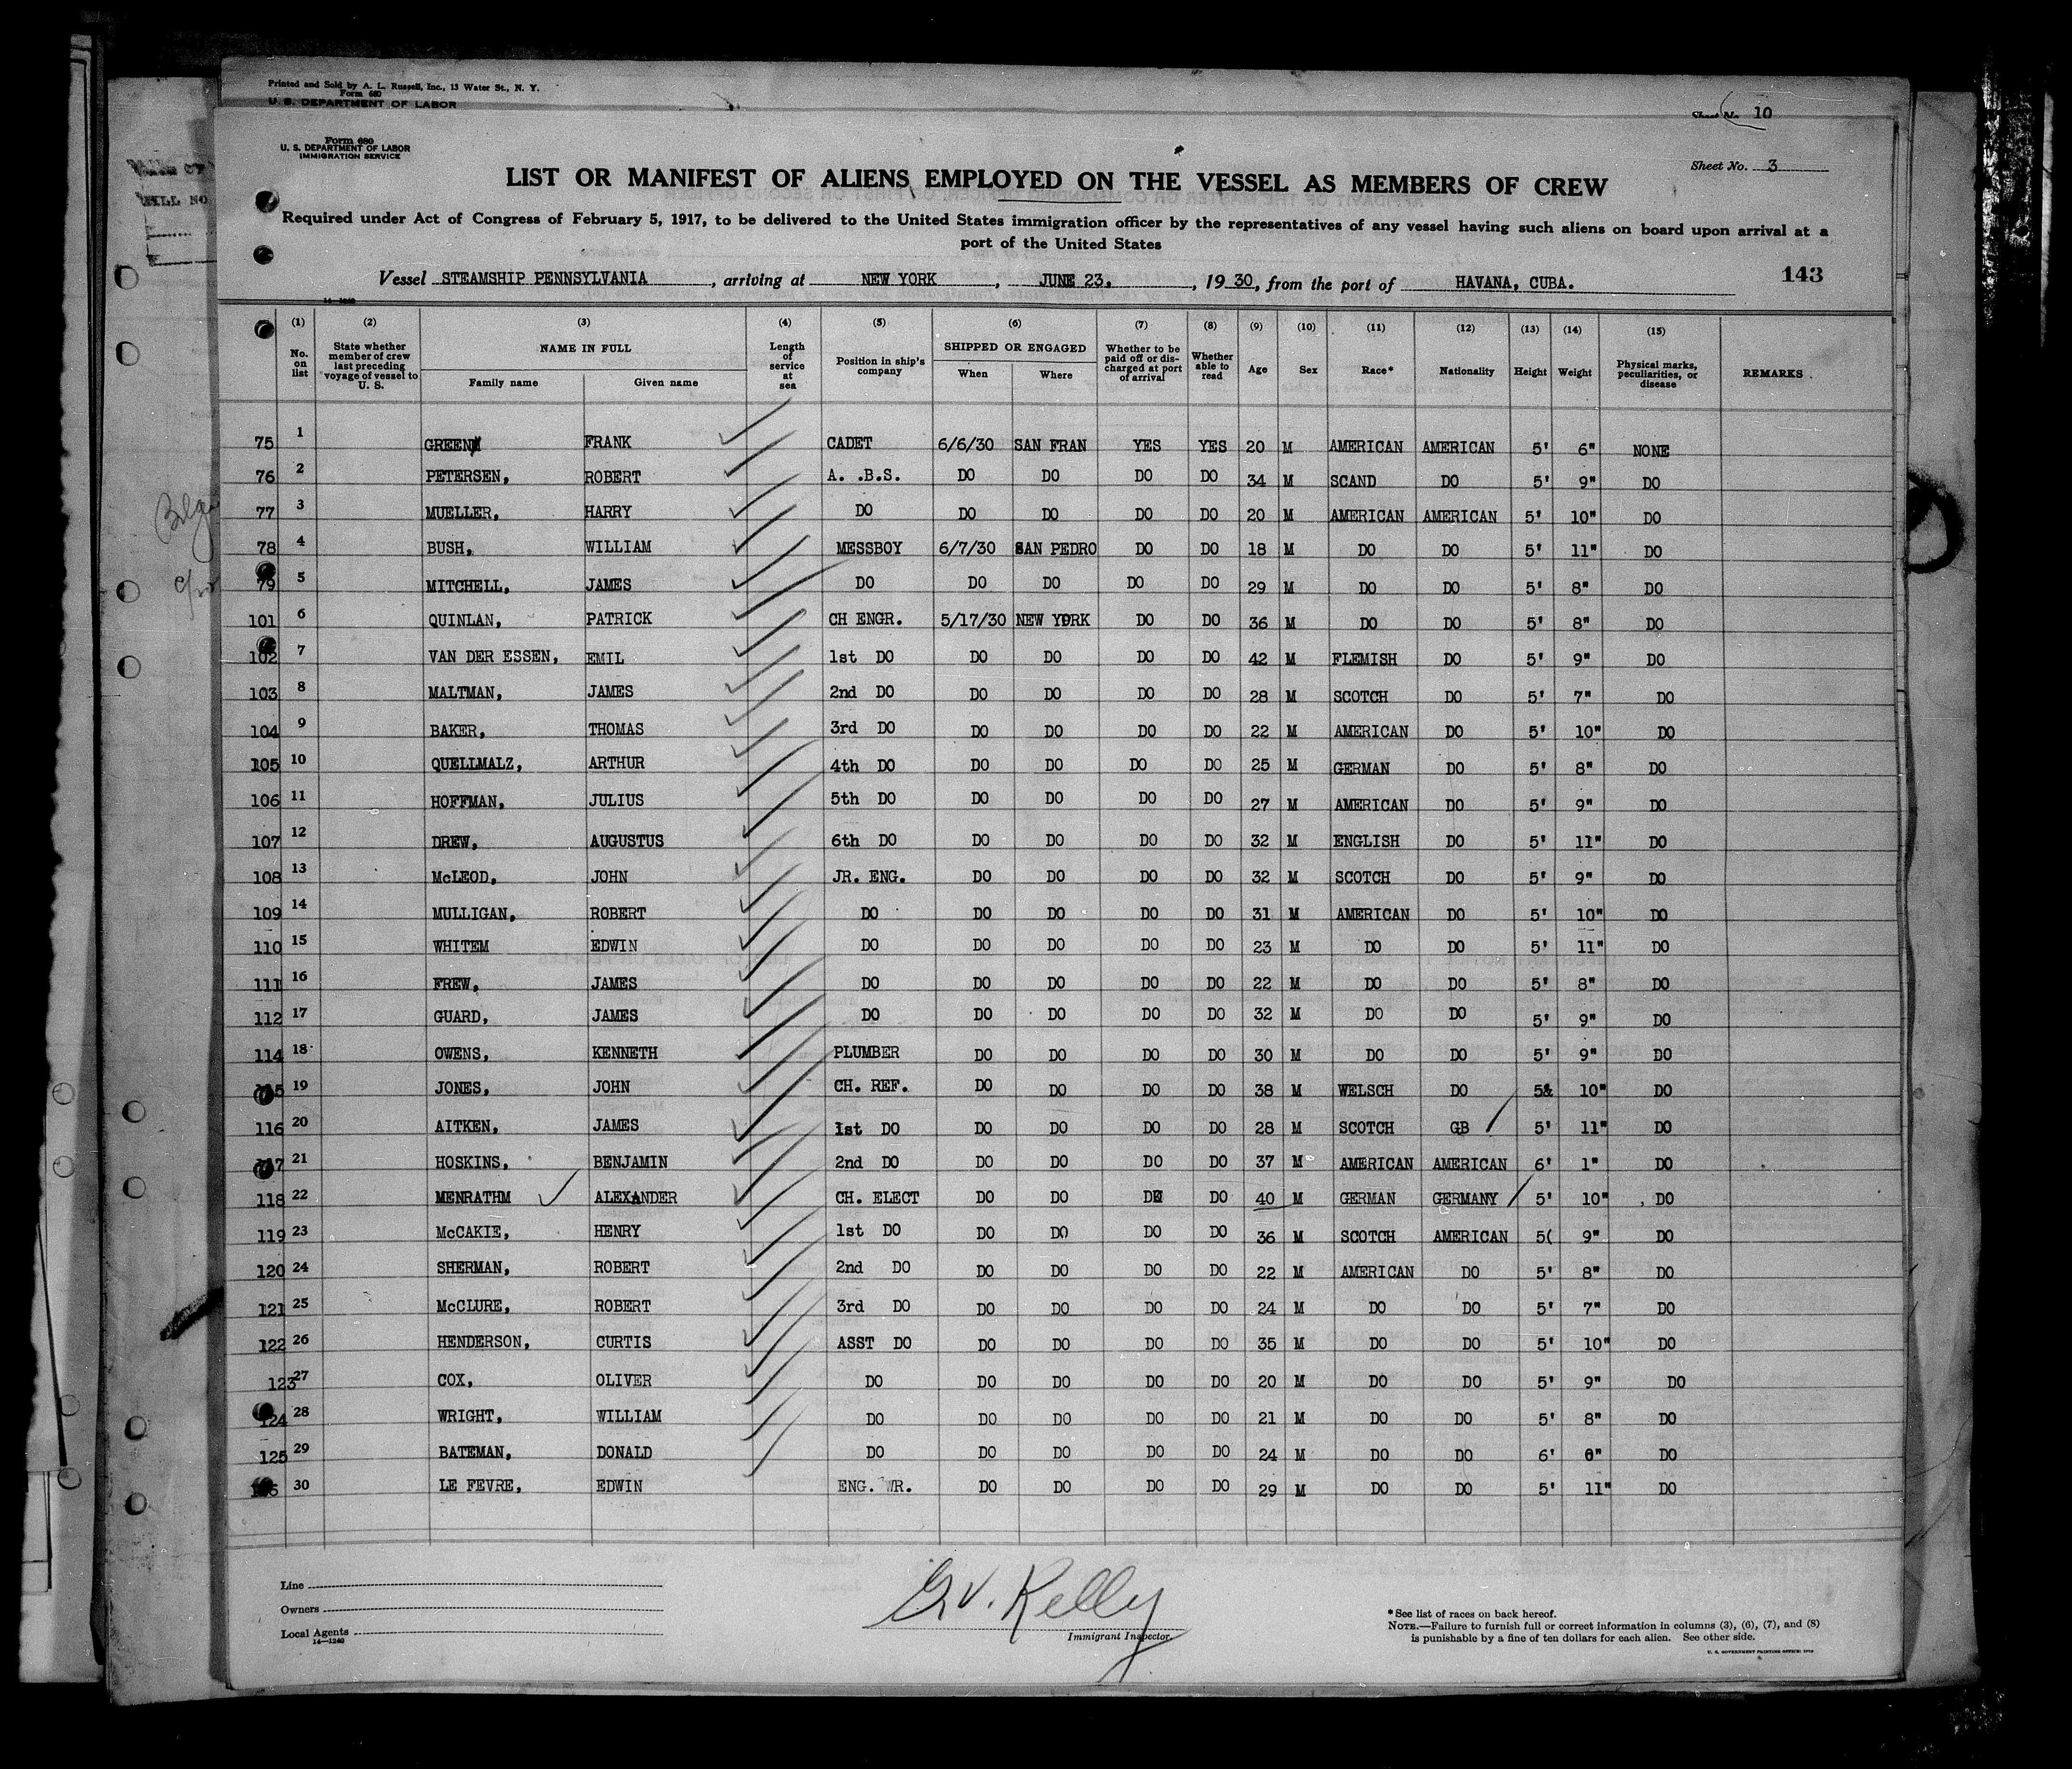 Printed and Sold by A. L. Russell, Inc., 13 Water St., N. Y.
Form 680
U. S. DEPARTMENT OF LABOR
Sheet No. 10
Form 680
U. S. DEPARTMENT OF LABOR
IMMIGRATION SERVICE
Sheet No. 3
LIST OR MANIFEST OF ALIENS EMPLOYED ON THE VESSEL AS MEMBERS OF CREW
Required under Act of Congress of February 5, 1917, to be delivered to the United States immigration officer by the representatives of any vessel having such aliens on board upon arrival at a
port of the United States
Vessel STEAMSHIP PENNSYLVANIA, arriving at NEW YORK, JUNE 23, 1930, from the port of HAVANA, CUBA. 143
14-1240
(1) (2) (3) (4) (5) (6) (7) (8) (9) (10) (11) (12) (13) (14) (15)
No. on list State whether member of crew last preceding voyage of vessel to U. S. NAME IN FULL Family name Given name Length of service at sea Position in ship's company SHIPPED OR ENGAGED When Where Whether to be paid off or discharged at port of arrival Whether able to read Age Sex Race* Nationality Height Weight Physical marks, peculiarities, or disease REMARKS
75 1 GREEN FRANK CADET 6/6/30 SAN FRAN YES YES 20 M AMERICAN AMERICAN 5' 6" NONE
76 2 PETERSEN, ROBERT A. .B.S. DO DO DO DO 34 M SCAND DO 5' 9" DO
77 3 MUELLER, HARRY DO DO DO DO DO 20 M AMERICAN AMERICAN 5' 10" DO
78 4 BUSH, WILLIAM MESSBOY 6/7/30 SAN PEDRO DO DO 18 M DO DO 5' 11" DO
79 5 MITCHELL, JAMES DO DO DO DO DO 29 M DO DO 5' 8" DO
101 6 QUINLAN, PATRICK CH ENGR. 5/17/30 NEW YORK DO DO 36 M DO DO 5' 8" DO
102 7 VAN DER ESSEN, EMIL 1st DO DO DO DO DO 42 M FLEMISH DO 5' 9" DO
103 8 MALTMAN, JAMES 2nd DO DO DO DO DO 28 M SCOTCH DO 5' 7" DO
104 9 BAKER, THOMAS 3rd DO DO DO DO DO 22 M AMERICAN DO 5' 10" DO
105 10 QUELLMALZ, ARTHUR 4th DO DO DO DO DO 25 M GERMAN DO 5' 8" DO
106 11 HOFFMAN, JULIUS 5th DO DO DO DO DO 27 M AMERICAN DO 5' 9" DO
107 12 DREW, AUGUSTUS 6th DO DO DO DO DO 32 M ENGLISH DO 5' 11" DO
108 13 McLEOD, JOHN JR. ENG. DO DO DO DO 32 M SCOTCH DO 5' 9" DO
109 14 MULLIGAN, ROBERT DO DO DO DO DO 31 M AMERICAN DO 5' 10" DO
110 15 WHITEM EDWIN DO DO DO DO DO 23 M DO DO 5' 11" DO
111 16 FREW, JAMES DO DO DO DO DO 22 M DO DO 5' 8" DO
112 17 GUARD, JAMES DO DO DO DO DO 32 M DO DO 5' 9" DO
114 18 OWENS, KENNETH PLUMBER DO DO DO DO 30 M DO DO 5' 9" DO
115 19 JONES, JOHN CH. REF. DO DO DO DO 38 M WELSCH DO 5& 10" DO
116 20 AITKEN, JAMES 1st DO DO DO DO DO 28 M SCOTCH GB 5' 11" DO
117 21 HOSKINS, BENJAMIN 2nd DO DO DO DO DO 37 M AMERICAN AMERICAN 6' 1" DO
118 22 MENRATHM ALEXANDER CH. ELECT DO DO DO DO 40 M GERMAN GERMANY 5' 10" DO
119 23 McCAKIE, HENRY 1st DO DO DO DO DO 36 M SCOTCH AMERICAN 5( 9" DO
120 24 SHERMAN, ROBERT 2nd DO DO DO DO DO 22 M AMERICAN DO 5' 8" DO
121 25 McCLURE, ROBERT 3rd DO DO DO DO DO 24 M DO DO 5' 7" DO
122 26 HENDERSON, CURTIS ASST DO DO DO DO DO 35 M DO DO 5' 10" DO
123 27 COX, OLIVER DO DO DO DO DO 20 M DO DO 5' 9" DO
124 28 WRIGHT, WILLIAM DO DO DO DO DO 21 M DO DO 5' 8" DO
125 29 BATEMAN, DONALD DO DO DO DO DO 24 M DO DO 6' 0" DO
30 LE FEVRE, EDWIN ENG. WR. DO DO DO DO 29 M DO DO 5' 11" DO
Line
Owners
Local Agents
14-1240
G.V. Kelly
Immigrant Inspector.
*See list of races on back hereof.
NOTE.—Failure to furnish full or correct information in columns (3), (6), (7), and (8)
is punishable by a fine of ten dollars for each alien. See other side.